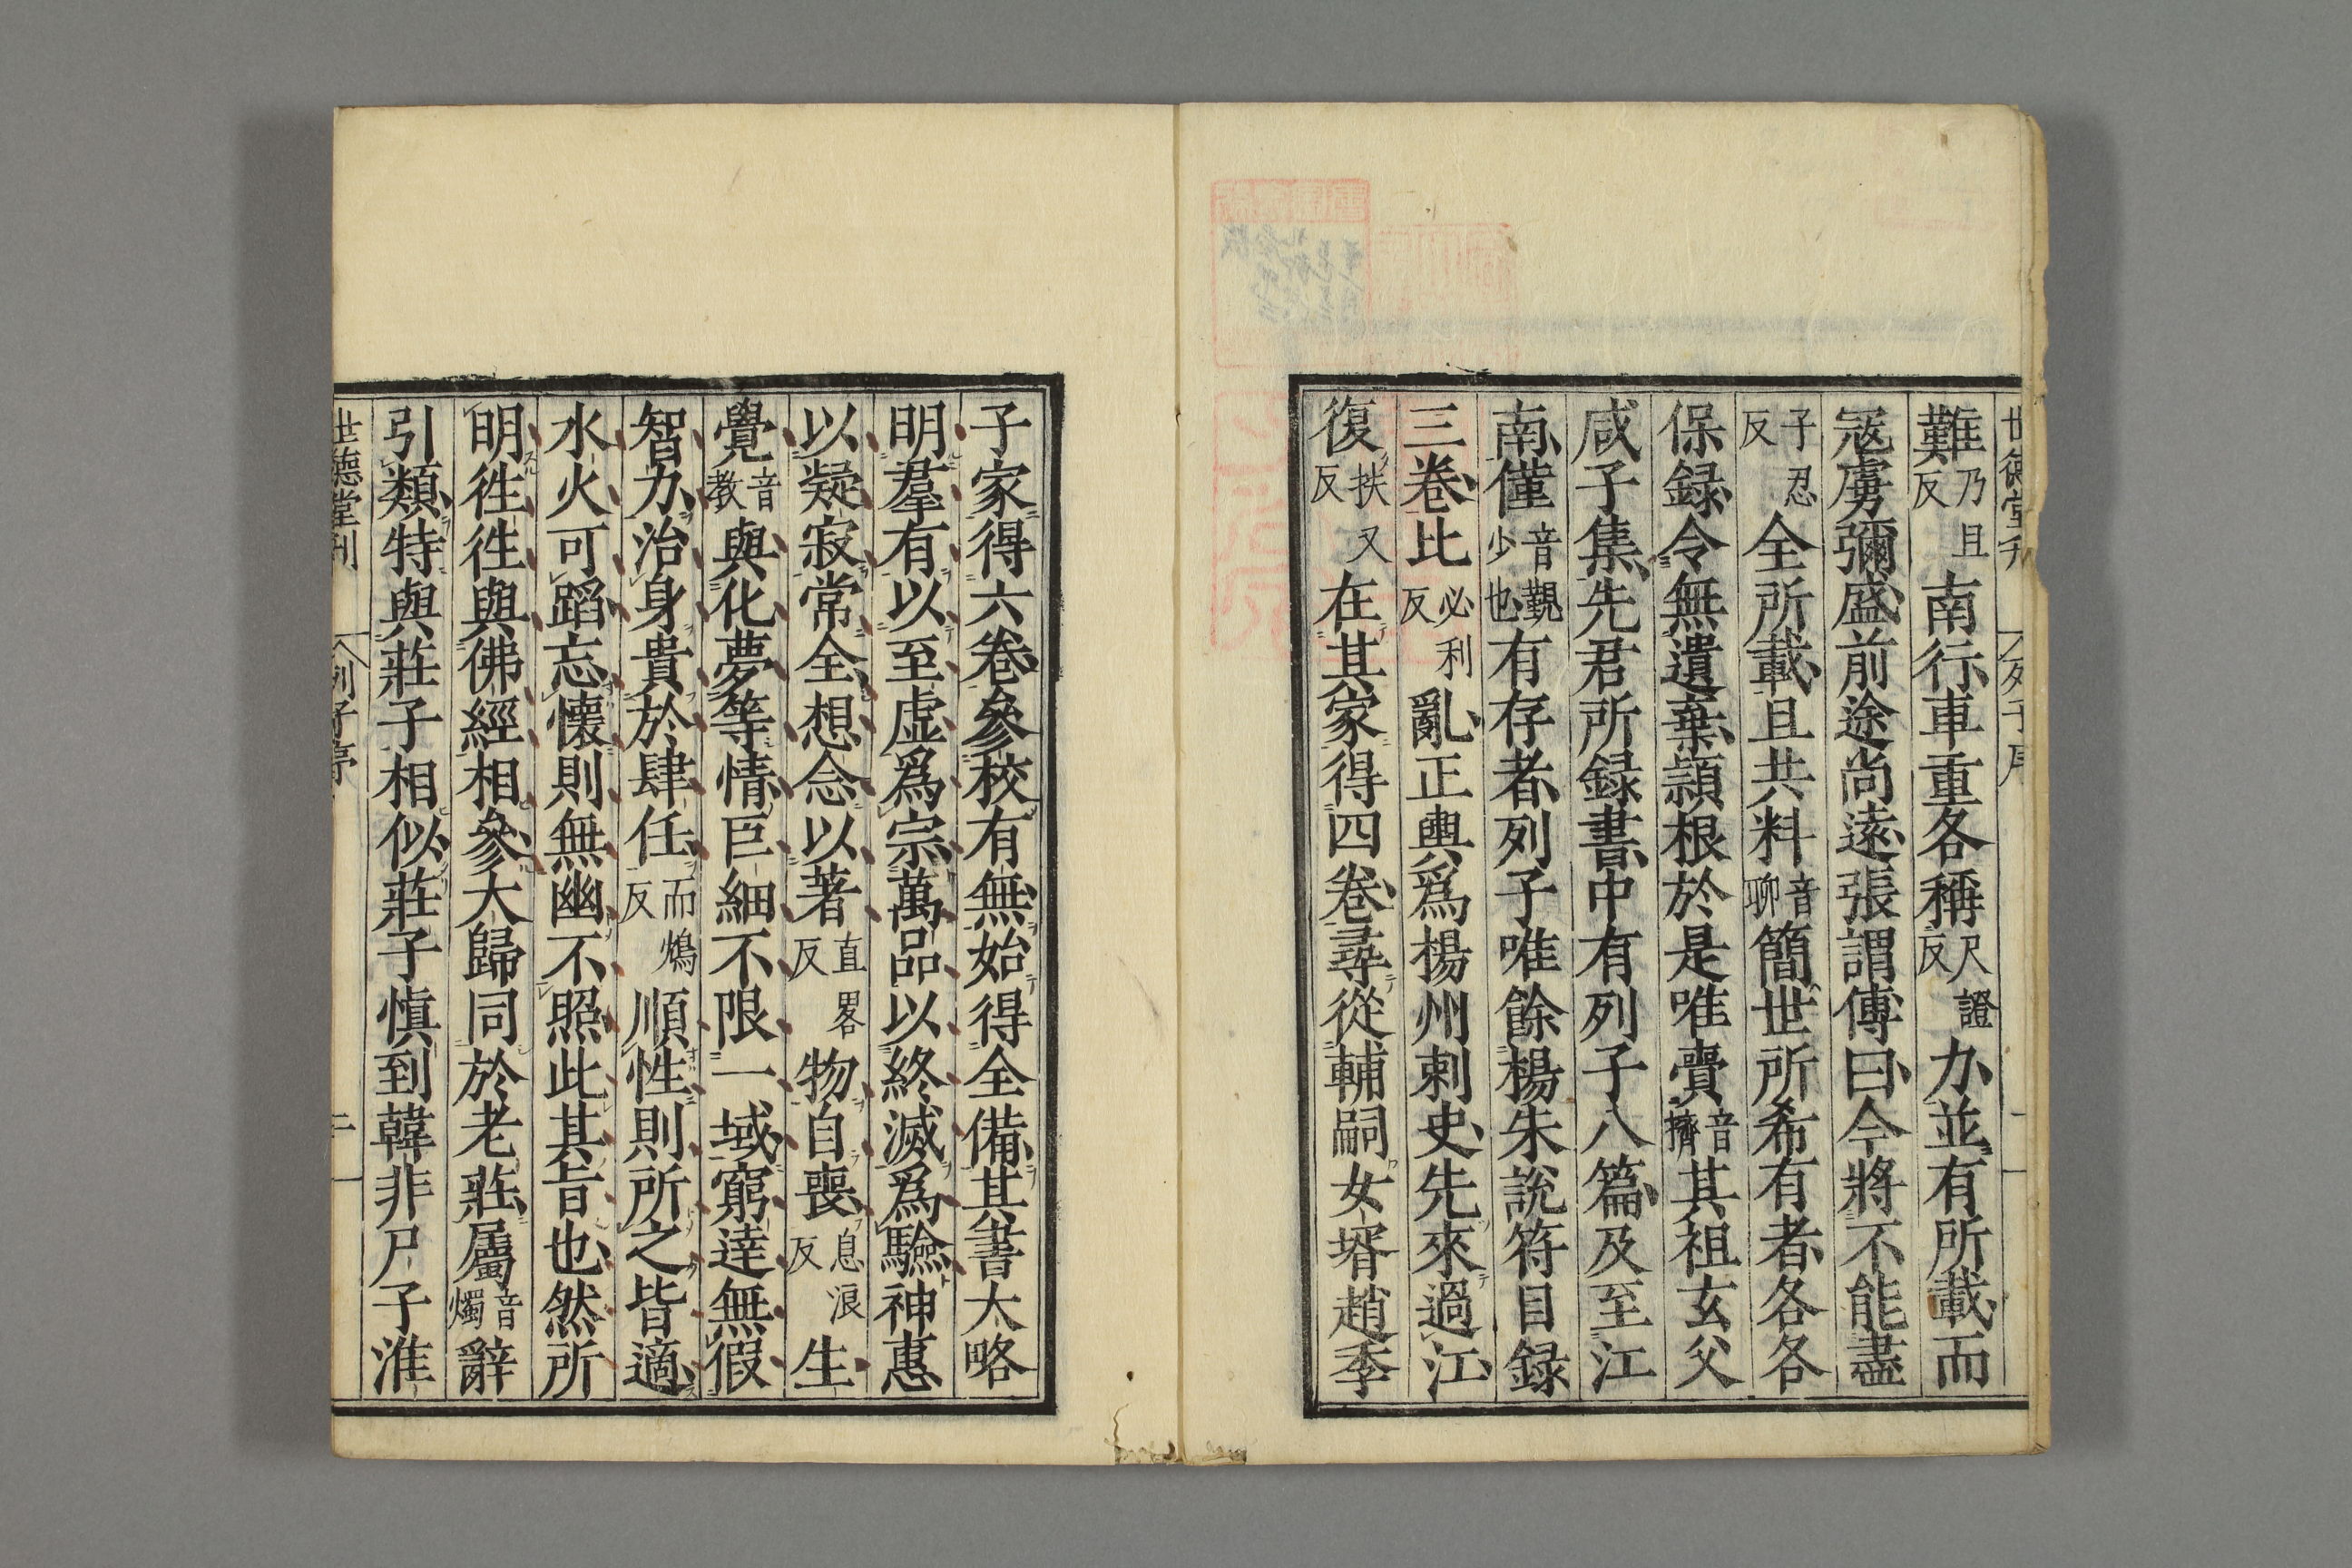 世德堂刊 列子序 一
難乃且反南行車重各稱尺證反力並有所載而
寇虜彌盛前途尚遠張謂傅曰今將不能盡
子忍反全所載且共料音聊簡世所希有者各各
保録令無遺棄穎根於是唯賷音擠其祖玄父
咸子集先君所録書中有列子八篇及至江
南僅音覲少也有存者列子唯餘楊朱說符目録
三卷比必利反亂正輿爲揚州刺史先來過江
復扶又反在其家得四卷尋從輔嗣女壻趙季
子家得六卷參校有無始得全備其書大略
明羣有以至虛爲宗萬品以終滅爲驗神惠
以凝寂常全想念以著直畧反物自喪息浪反生
覺音教與化夢等情巨細不限一域窮達無假
智力治身貴於肆任而鴆反順性則所之皆適
水火可蹈忘懷則無幽不照此其旨也然所
明徃徃與佛經相參大歸同於老莊屬音燭辭
引類特與莊子相似莊子愼到韓非尸子淮
世德堂刊 列子序 二